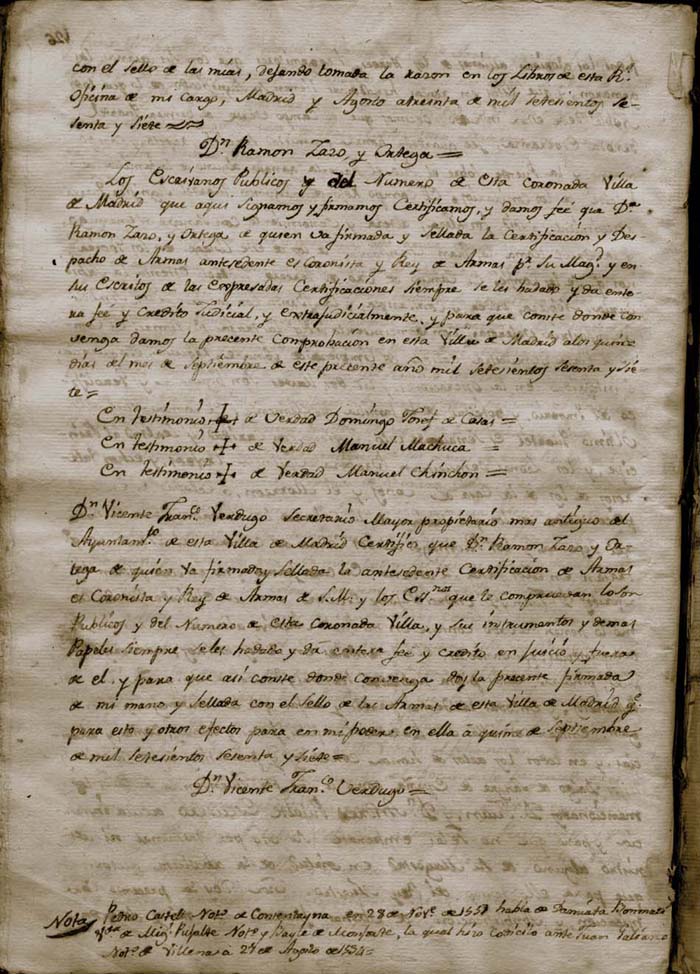 con el Sello de las mias, dejando tomada la razon en los Libros de esta Rl.
Oficina de mi Cargo, Madrid y Agosto atreinta de mil setesientos se-
senta y siete
Dn Ramon Zazo, y Ortega =
Los Escrivanos Publicos y del Numero de Esta Coronada Villa
de Madrid que aqui signamos y firmamos Certificamos, y damos feé que Dn.
Ramon Zazo, y Ortega de quien va firmada y Sellada la Certificacion y Des-
pacho de Armas antesedente es Coronista y Rey de Armas pr. Su Magd. y en
sus Escritos de las expresadas Certificaciones siempre se les hadado y da ente-
ra feé y Credito Judicial, y extrajudicialmente, y para que conste donde con-
venga damos la precente Comprobacion en esta Villa de Madrid alos quinze
dias del mes de Septiembre de este precente año mil setesientos sesenta y sie-
te =
En testimonio + de Verdad Domingo Josef de Casas =
En testimonio + de Verdad Manuel Machuca =
En testimonio + de Verdad Manuel Chinchon =
Dn. Vicente Franco. Verdugo Secretario Mayor propietario mas antiguo del
Ayuntamto. de esta Villa de Madrid Certifico que Dn. Ramon Zazo y Or-
tega de quien va firmada y Sellada la antesedente Certificacion de Armas
es Coronista y Rey de Armas de S.M. y los Essnos que le compruevan lo son
Publicos y del Numero de Esta Coronada Villa, y sus instrumentos y demas
Papeles siempre seles hadado y da entera feé y credito en Juicio y fuera
de el. y para que asi conste donde convenga doy la precente firmada
de mi mano y Sellada con el Sello de las Armas de esta Villa de Madrid qe.
para esto y otros efectos para en mi poder en ella à quinze de Septiembre
de mil setesientos sesenta y siete =
Dn. Vicente Franco. Verdugo =
Nota Pedro Castel Noto. de Contentayna en 28 de Nove. de 1551 havia de Damiata
vda de Migl. Pujalte Noto. y Bayle de Monforte, la qual hizo Codicilo ante Juan
Noto. de Villena à 27 de Agosto de 1534 =